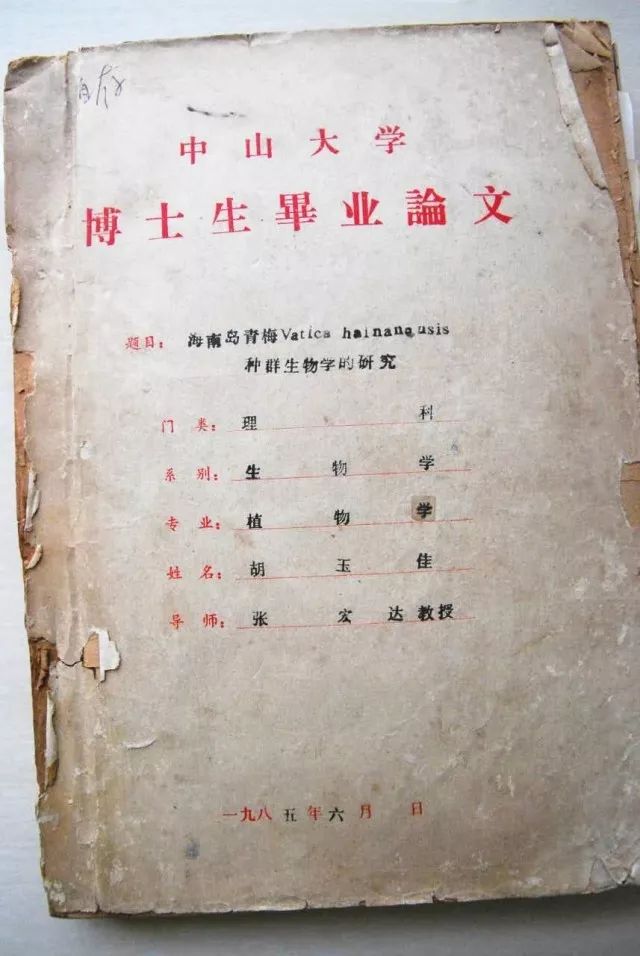 自存
中山大学
博士生畢业論文
题目：海南岛青梅Vatica hainanensis
种群生物学的研究
门类：理科
系别：生物学
专业：植物学
姓名：胡玉佳
导师：张宏达教授
一九八五年六月 日